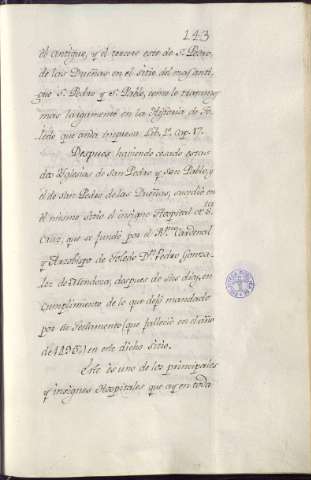 143
el antiguo, y el tercero este de S.n Pedro,
de las Dueñas en el sitio del mas anti-
guo S.n Pedro y S.n Pablo, como lo
mas largamente en la Historia de To-
ledo que anda impresa Lib. 2. cap. 17.
Despues haviendo cesado estas
dos Yglesias de San Pedro y San Pablo, y
el de San Pedro de las Dueñas, sucedió en
el mismo sitio el insigne Hospital de S.ta
Cruz, que se fundó por el R.mo Cardenal
y Arzobispo de Toledo D.n Pedro Gonza-
lez de Mendoza, despues de sus dias, en
cumplimiento de lo que dejó mandado
por su Testamento (que falleció en el año
de 1495,) en este dicho sitio.
Este es uno de los principales
y insignes Hospitales que ay en toda